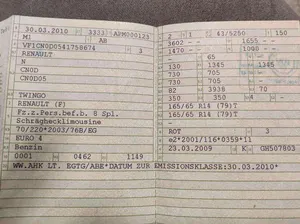 30.03.2010 3333 APM000123
M1 AH
VF1CN0D0541758874 3
RENAULT
N
CN0D
CN0D05
TWINGO
RENAULT (F)
Fz.z.Pers.bef.b. 8 Spl.
Schräghecklimousine
70/220*2003/76B/EG
EURO 4
Benzin
0001 0462 1149
2 1 43/5250 150
3602 - 1655 -
1470 - 1090 -
- 65 -
130 1345 130 1345
730 705 - -
730 705 - -
B2 938 70
5 -
165/65 R14 (79)T
165/65 R14 (79)T
ROT 3
e2*2001/116*0359*11
23.03.2009 K GH507803
WW.AHK LT. EGTG/ABE*DATUM ZUR EMISSIONSKLASSE:30.03.2010*